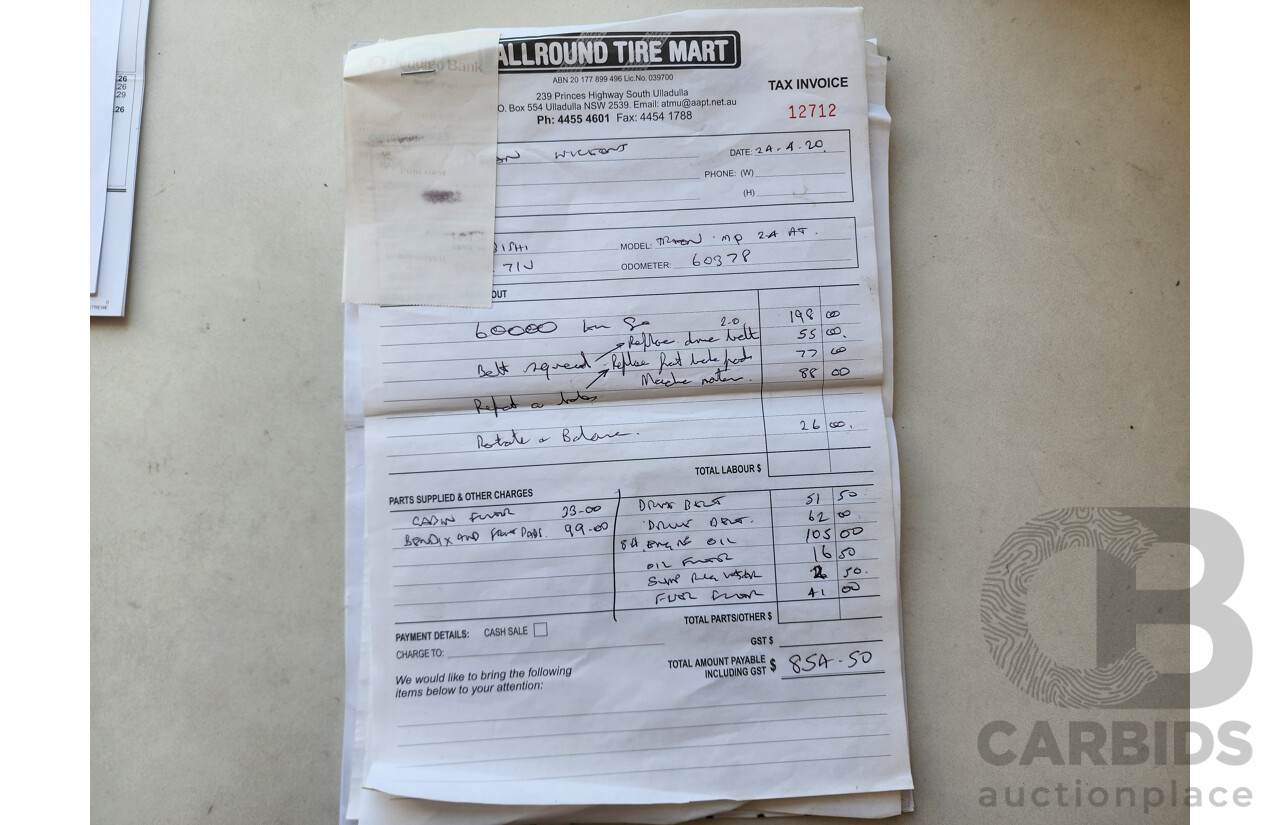 .26
.26
.29
.26
Bank
ALLROUND TIRE MART
ABN 20 177 899 496 Lic.No. 039700
TAX INVOICE
239 Princes Highway South Ulladulla
O. Box 554 Ulladulla NSW 2539. Email: atmu@aapt.net.au
Ph: 4455 4601 Fax: 4454 1788
12712
DATE: 24.4.20.
PHONE: (W)
(H)
BISHI MODEL: TRITON MP 2.4 AT.
71J ODOMETER: 60378
OUT
60000 km 2.0 198 00
Replace drive belt 55 00.
Belt squeal Replace frt brake pads 77 00
Machine rotors. 88 00
Report on brakes
Rotate & Balance. 26 00.
TOTAL LABOUR $
PARTS SUPPLIED & OTHER CHARGES
CABIN FILTER 33-00 DRIVE BELT 51 50
BENDIX AND FRNT PADS. 99-00 DRIVE BELT. 62 00
8L ENGINE OIL 105 00
OIL FILTER 16 50
SUMP PLUG WASHER 2 50.
FUEL FILTER 41 00
TOTAL PARTS/OTHER $
PAYMENT DETAILS: CASH SALE
GST $
CHARGE TO:
TOTAL AMOUNT PAYABLE INCLUDING GST $ 854-50
We would like to bring the following
items below to your attention:
CB
CARBIDS
auctionplace